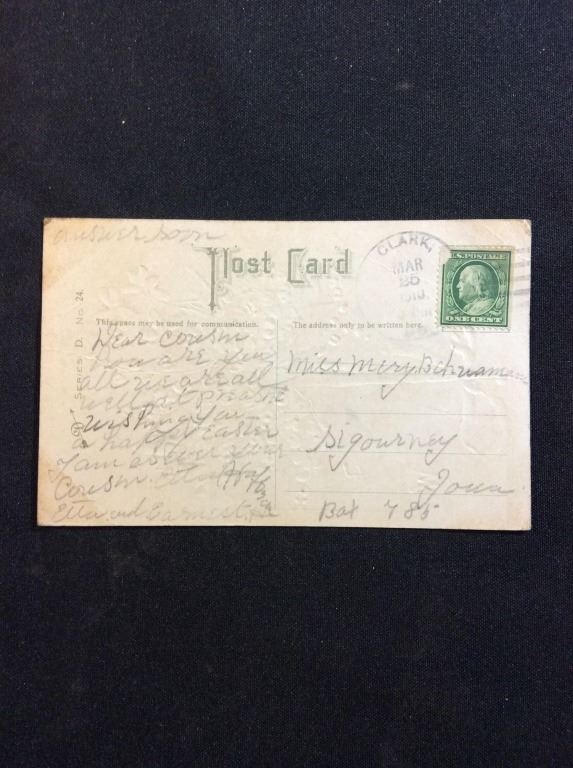 answer soon
Post Card
CLARK,
MAR
25
1910
U.S. POSTAGE
ONE CENT
SERIES D. No. 24.
This space may be used for communication.
The address only to be written here.
Dear Cousin
how are you
all we are all
well at present
wishing you
a happy Easter
I am as ever your
Cousin Etta
Etta and Earnest
Miss Mery
Sigourney
Iowa
Box 785